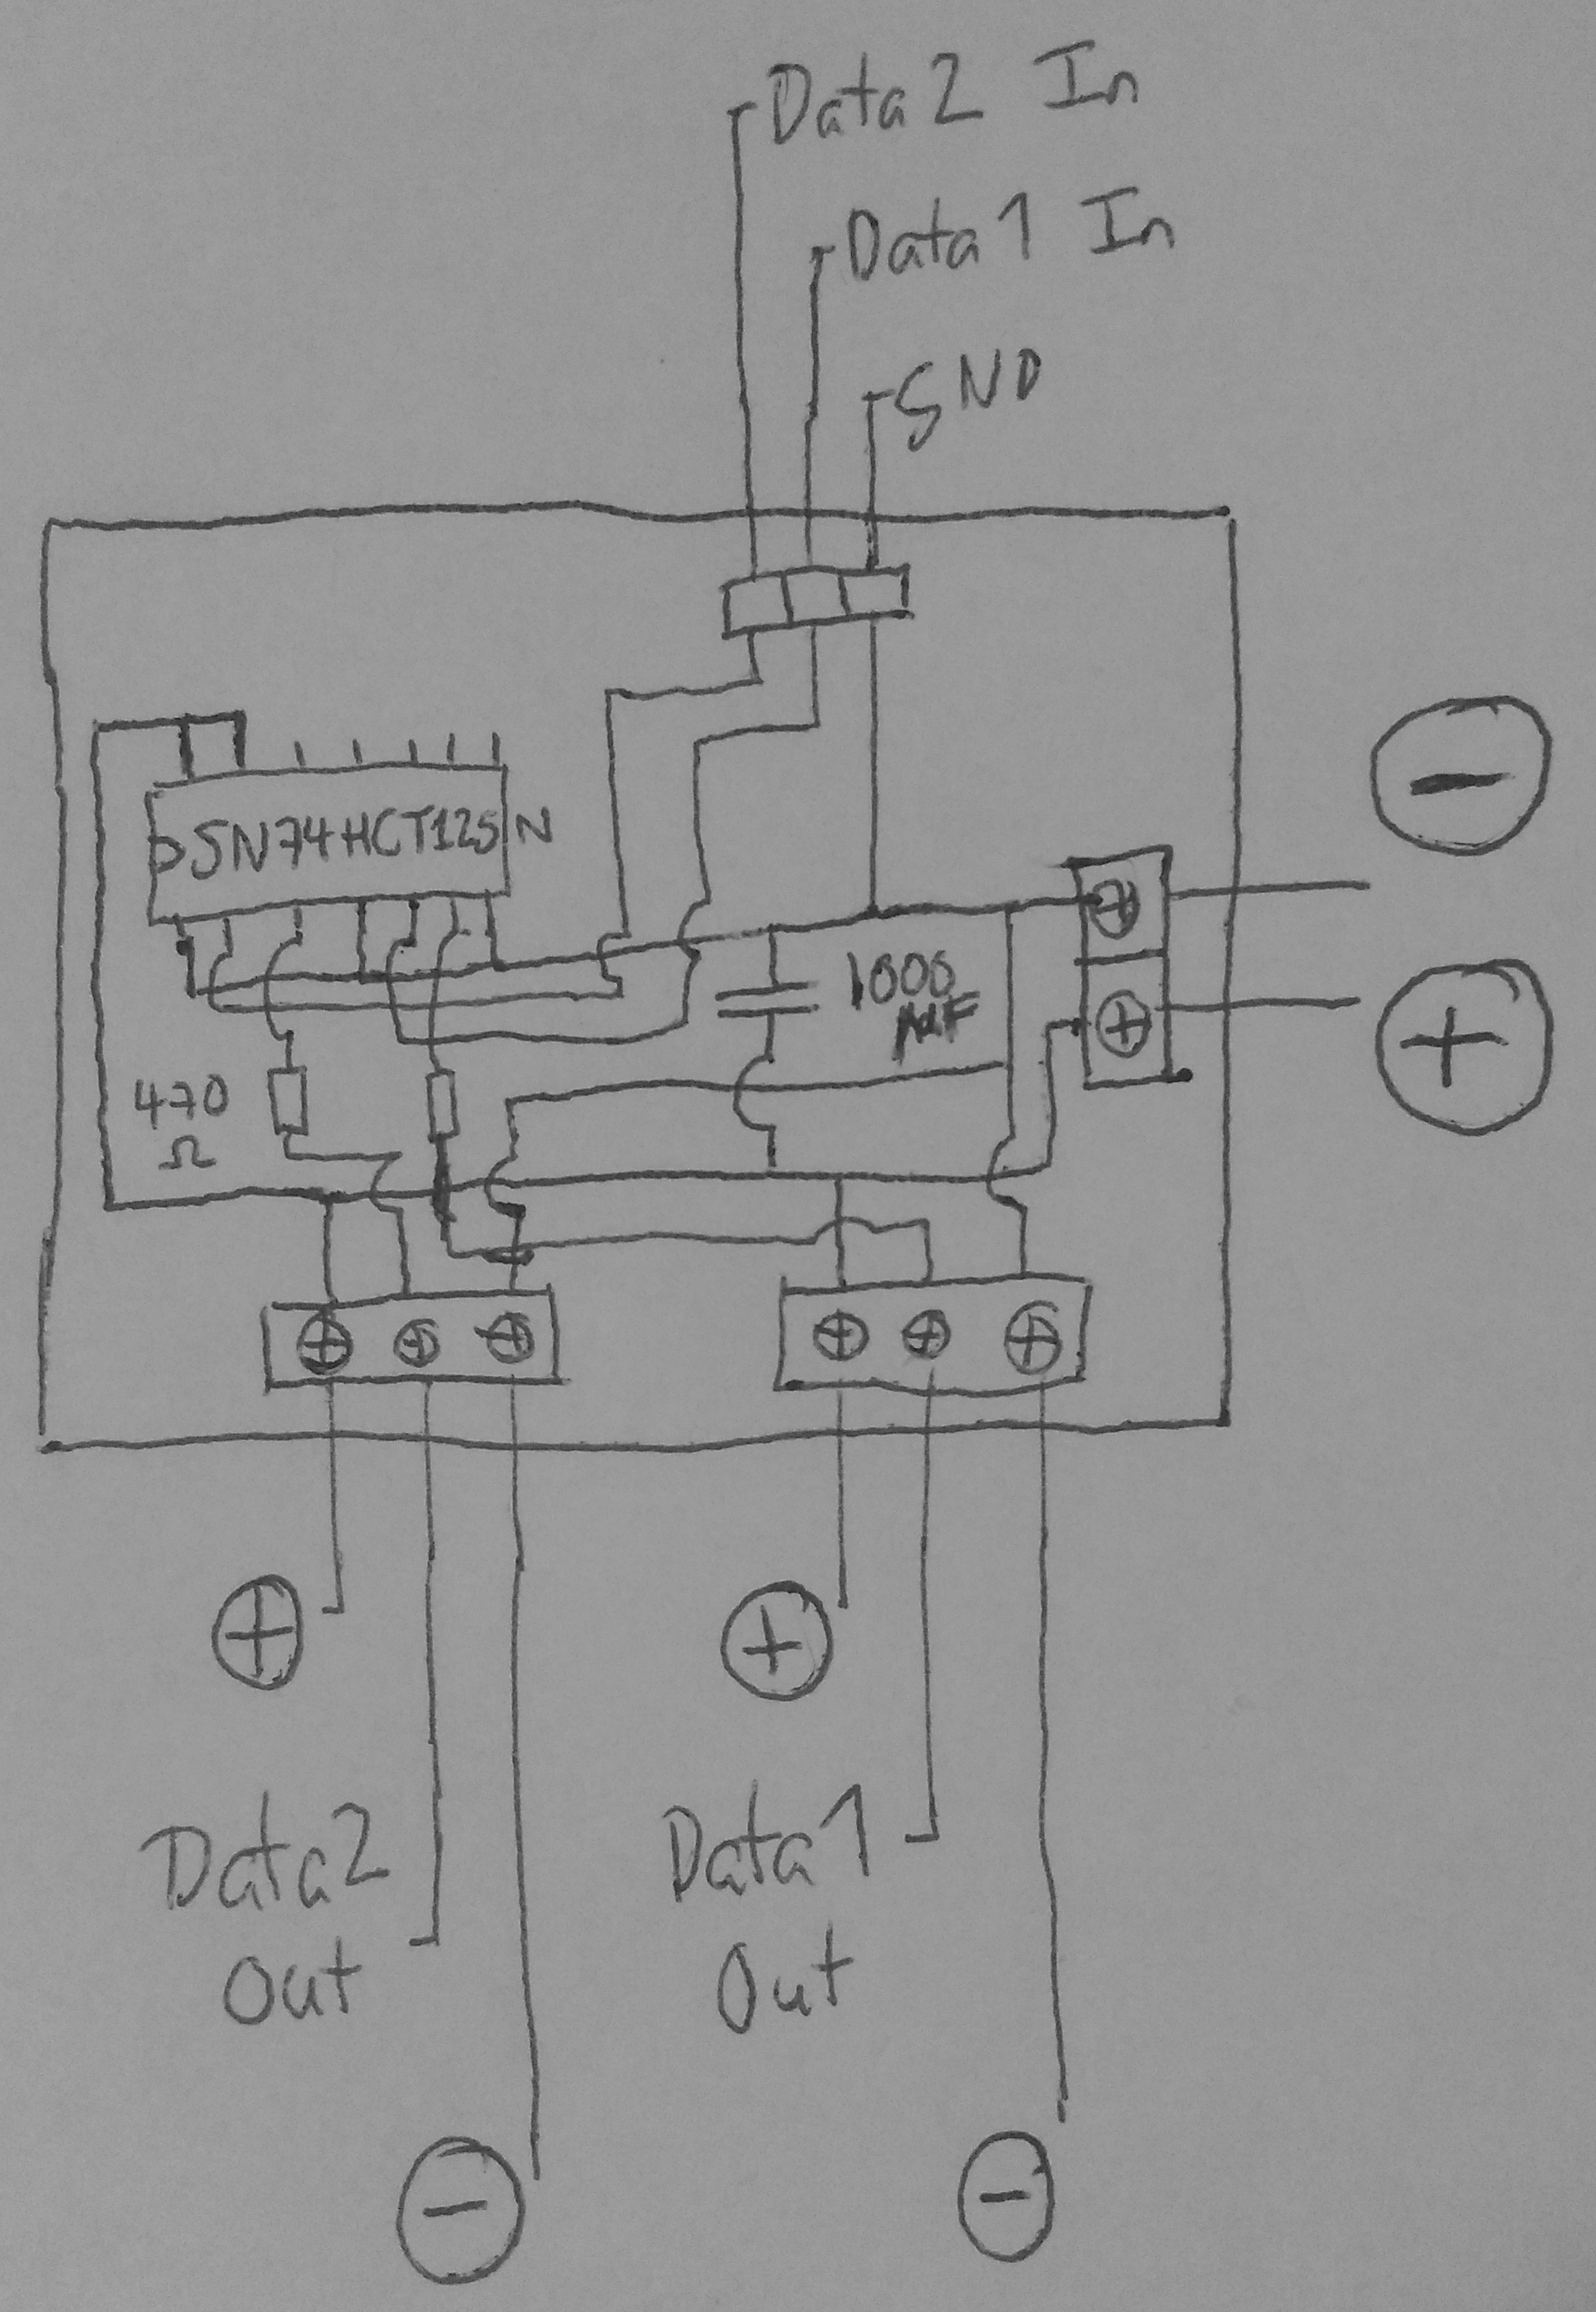 Data2 In
Data1 In
GND
SN74HCT125N
1000
µF
470
Ω
-
+
+
+
Data2
Out
Data1
Out
-
-